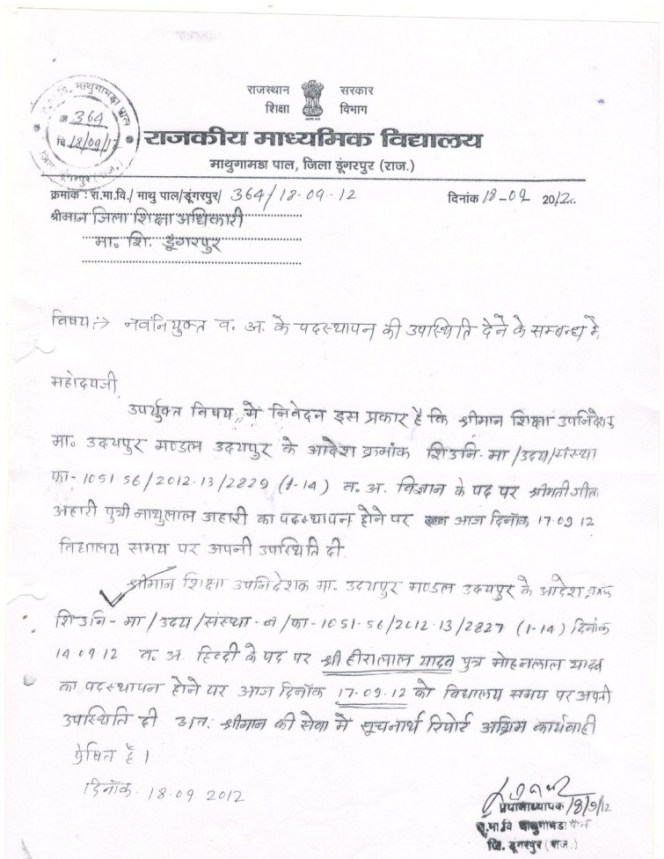 राजस्थान सरकार
शिक्षा विभाग
364
18/09/12
राजकीय माध्यमिक विद्यालय
माथुगामडा पाल, जिला डूंगरपुर (राज.)
क्रमांक : रा.मा.वि./ माथु पाल/डूंगरपुर/ 364/18-09-12 दिनांक 18-09 2012
श्रीमान जिला शिक्षा अधिकारी
मा. शि. डूंगरपुर
विषय:-> नवनियुक्त व. अ. के पदस्थापन की उपस्थिति देने के सम्बन्ध मे,
महोदयजी
उपर्युक्त विषय में निवेदन इस प्रकार है कि श्रीमान शिक्षा उपनिदेशक
मा. उदयपुर मण्डल उदयपुर के आदेश क्रमांक शिउनि-मा/उदय/संस्था
फा-1051-56/2012-13/2829 (1-14) व. अ. विज्ञान के पद पर श्रीमती गीता
अहारी पुत्री नाथुलाल अहारी का पदस्थापन होने पर आज दिनाँक 17.09.12
विद्यालय समय पर अपनी उपस्थिति दी.
श्रीमान शिक्षा उपनिदेशक मा. उदयपुर मण्डल उदयपुर के आदेश क्रमांक
शिउनि-मा/उदय/संस्था-ब/फा-1051-56/2012-13/2827 (1-14) दिनांक
14.09.12 व. अ. हिन्दी के पद पर श्री हीरालाल यादव पुत्र मोहनलाल यादव
का पदस्थापन होने पर आज दिनाँक 17.09.12 को विद्यालय समय पर अपनी
उपस्थिति दी अतः श्रीमान की सेवा मे सूचनार्थ रिपोर्ट अग्रिम कार्यवाही
प्रेषित है।
दिनाँक-18.09 2012
प्रधानाध्यापक 18/9/12
रा.मा.वि माथुगामडा पाल
जि. डूंगरपुर (राज.)